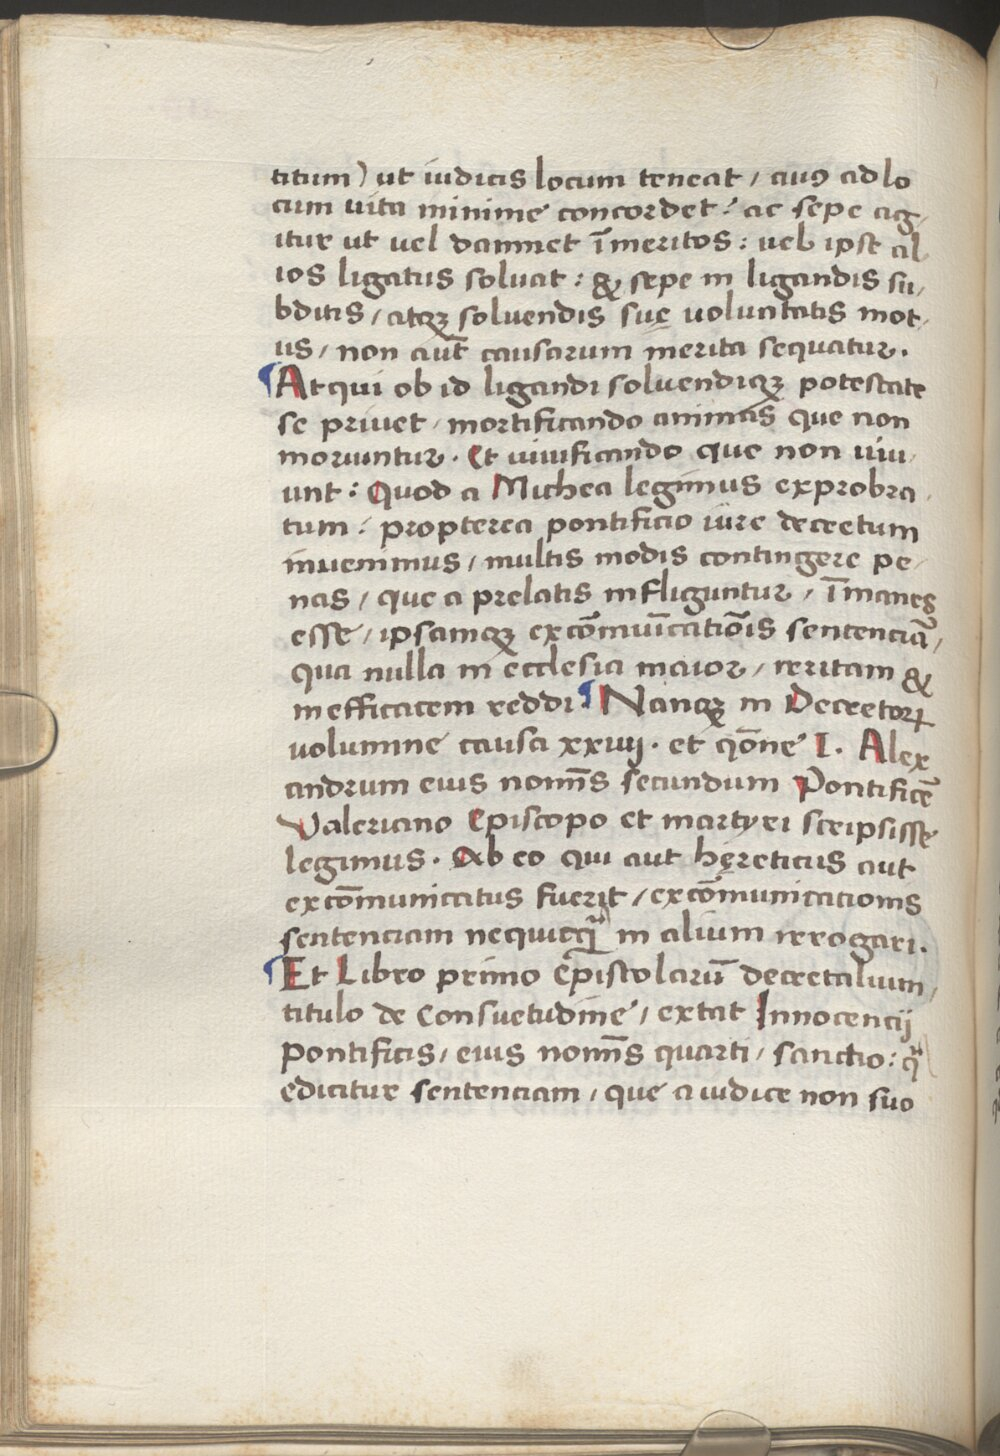 titum) ut iudicis locum teneat / cuiꝯ ad lo
cum uita minime concordet : ac sepe ag,
itur ut uel damnet īmeritos : uel ipse al
ios ligatus soluat : & sepe in ligandis su,
bditis / atqꝫ soluendis suę uoluntatis mot,
us / non aut̄ causarum merita sequatur .
¶ Atqui ob id ligandi soluendiqꝫ potestate
se priuet / mortificando animas que non
moriuntur . Et uiuificando que non uiu,
unt : Quod a Michea legimus exprobra,
tum : propterea pontificio iure decretum
inuenimus / multis modis contingere pe,
nas / que a prelatis infliguntur / īmanes
esse / ipsamqꝫ excōmuīcatiōis sentenciā /
qua nulla in ecclesia maior / irritam &
inefficacem reddi ¶ Nanqꝫ in Decretoꝝ
uolumine causa xxiiij . et qōne I . Alex
andrum eius nomīs secundum Pontificē
Valeriano Episcopo et martyri scripsisse
legimus . Ab eo qui aut hęreticus aut
excōmunicatus fuerit / excōmunicationis
sentenciam nequicqᷓ in alium irrogari .
¶ Et Libro primo Epistolarum̄ decretalium /
titulo de Consuetudine / extat Innocencij
Pontificis / eius nomīs quarti / sanctio : qᷓ
edicitur sentenciam / que a iudice non suo